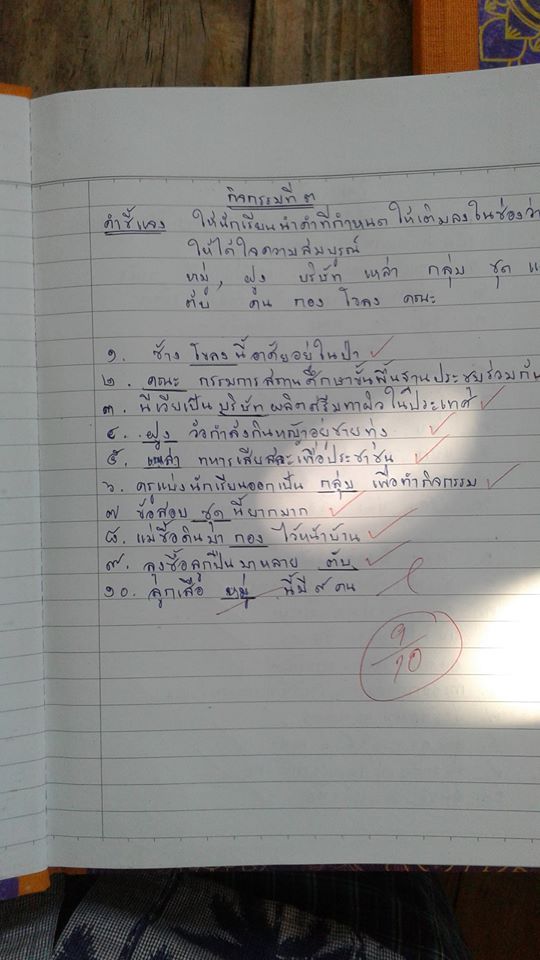 กิจกรรมที่ ๓
คำชี้แจง ให้นักเรียนนำคำที่กำหนด ให้เติมลงในช่องว่
ให้ได้ใจความสมบูรณ์
หมู่, ฝูง บริษัท เหล่า กลุ่ม ชุด แ
ตับ คน กอง โขลง คณะ
๑. ช้าง โขลง นี้อาศัยอยู่ในป่า
๒. คณะ กรรมการสถานศึกษาขั้นพื้นฐานประชุมร่วมกัน
๓. นีเวียเป็น บริษัท ผลิตครีมทาผิวในประเทศ
๔. ฝูง วัวกำลังกินหญ้าอยู่ชายทุ่ง
๕. เหล่า ทหารเสียสละเพื่อประชาชน
๖. ครูแบ่งนักเรียนออกเป็น กลุ่ม เพื่อทำกิจกรรม
๗ ข้อสอบ ชุด นี้ยากมาก
๘. แม่ซื้อดินมา กอง ไว้หน้าบ้าน
๙. ลุงซื้อลูกปืนมาหลาย ตับ
๑๐. ลูกเสือ หมู่ นี้มี ๙ คน
9/10